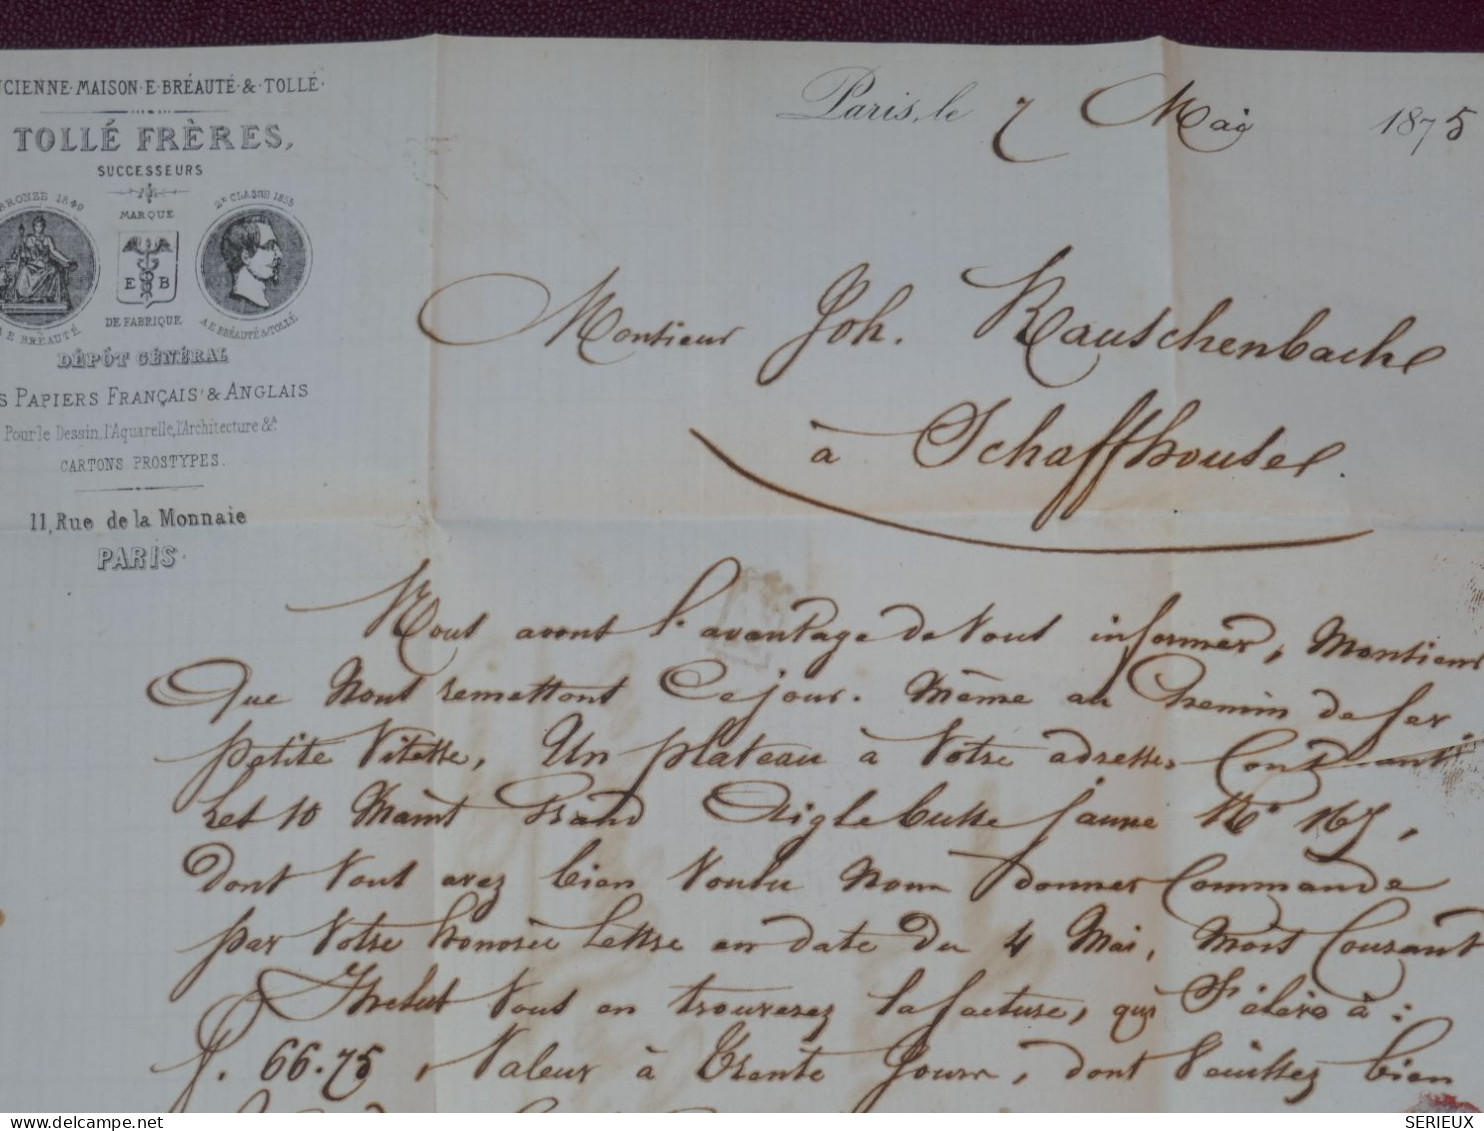 NCIENNE·MAISON·E·BRÉAUTÉ·&·TOLLÉ·
TOLLÉ FRÈRES,
SUCCESSEURS
BRONZE 1849
MARQUE
2E CLASSE 1855
E B
A E BRÉAUTÉ
DE FABRIQUE
A.E BRÉAUTÉ & TOLLÉ
DÉPÔT GÉNÉRAL
S PAPIERS FRANÇAIS & ANGLAIS
Pour le Dessin, l'Aquarelle, l'Architecture &a
CARTONS PROSTYPES.
11, Rue de la Monnaie
PARIS·
Paris, le 7 Mai 1875
Monsieur Joh. Rauschenbach
à Schaffhouse.
Nous avons l'avantage de Vous informer, Monsieur
Que Nous remettons Ce jour. Même au Chemin de fer
petite Vitesse, Un plateau à Votre adresse, Contenant
Les 10 Mains Grand Aigle bulle jaune No 167,
dont Vous avez bien Voulu Nous donner Commande
par Votre honorée lettre en date du 4 Mai, Mois Courant
Inclus Vous en trouverez la facture, qui S'élève à :
f. 66.75, Valeur à Trente Jours, dont Veuillez bien
SERIEUX